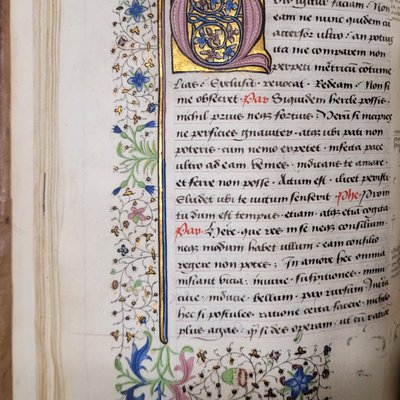 Quid igitur faciam · Non
eam ne nunc quidem cu
accersor ultro · an potius
ita me comparem non
perpeti meretricum contume
lias · Exclusit · revocat · Redeam · Non si
me obsecret · Par Siquidem hercle possis ·
nichil prius neq fortius · Veru si incipies
ne perficies gnaviter · atq ubi pati non
poteris · cum nemo expetet · infecta pace
ultro ad eam venies · indicans te amare ·
et ferre non posse · Actum est · ilicet peristi ·
Eludet ubi te victum senserit · Phe Prom
tu dum est tempus · etiam · atq etia cogita ·
Par Here · que res · in se neq consilium ·
neq modum habet ullum · eam consilio
regere non potes · In amore hec omnia
insunt vicia · iniurie · suspitiones · inimi
citie · inducie · bellum · pax rursum · Incerta
hec si postules · ratione certa facere · nichilo
plus agas · q si des operam · ut cu ratione